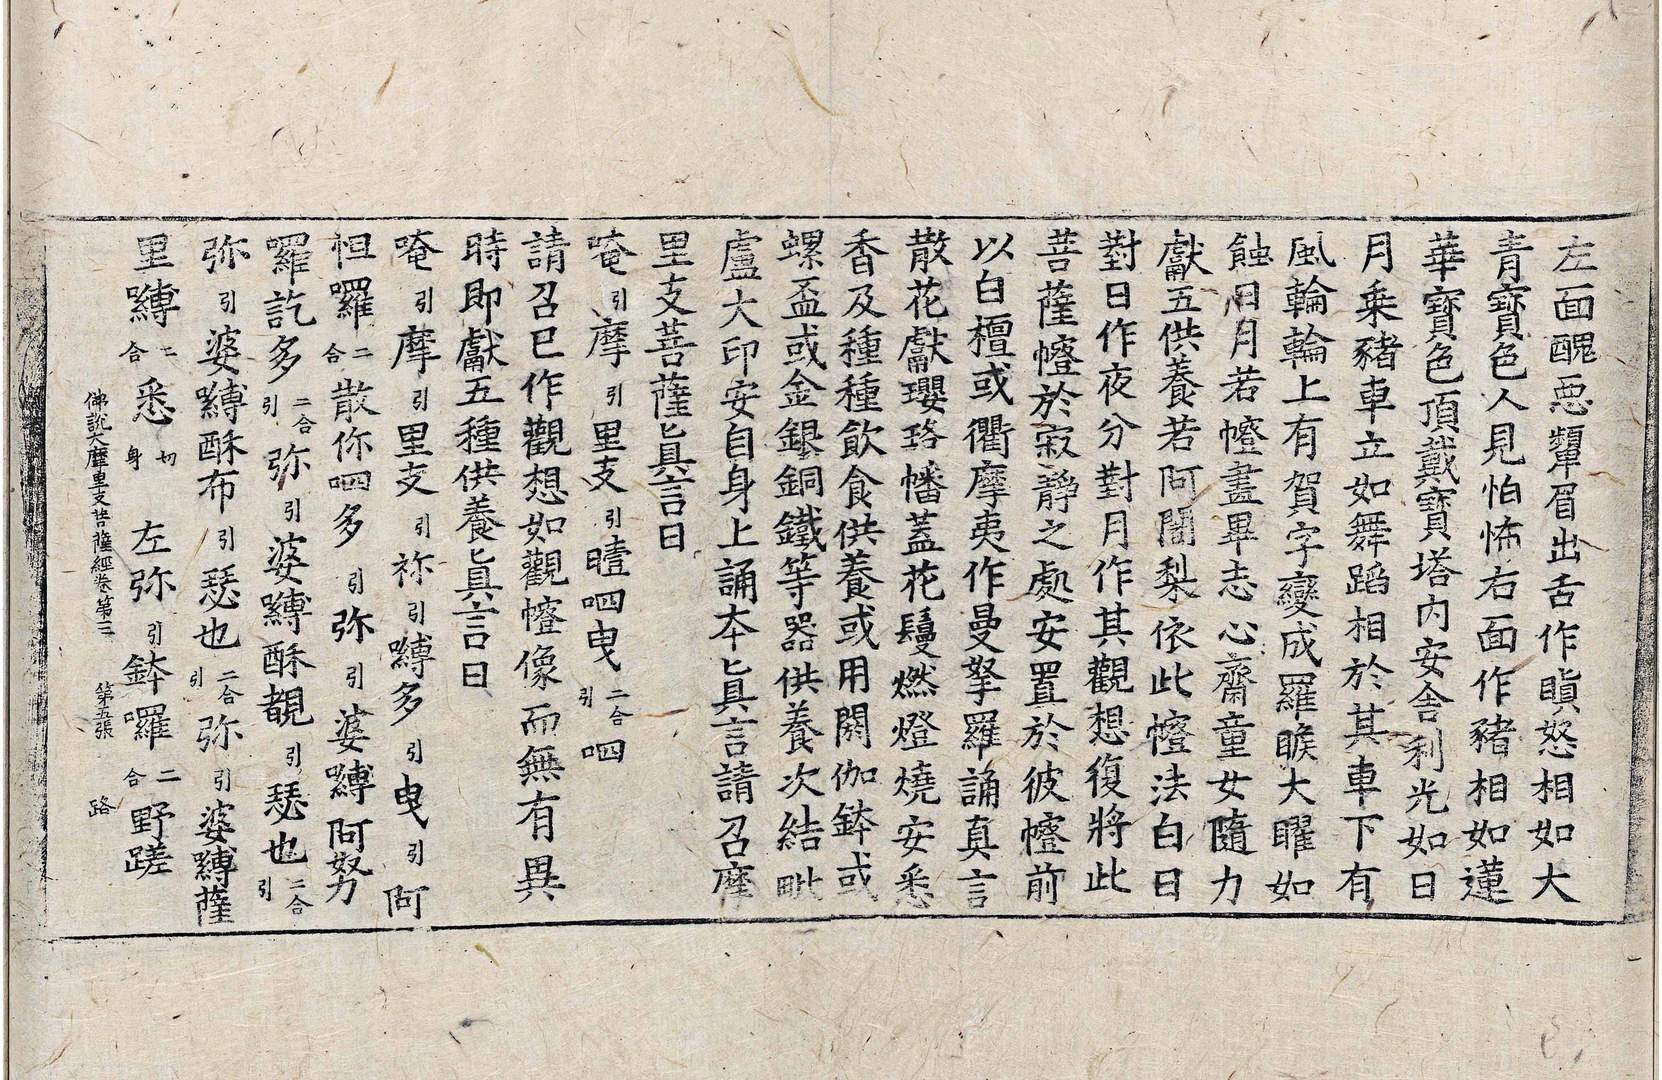 左面醜惡顰眉出舌作瞋怒相如大
青寶色人見怕怖右面作豬相如蓮
華寶色頂戴寶塔內安舍利光如日
月乘豬車立如舞蹈相於其車下有
風輪輪上有賀字變成羅睺大曜如
蝕日月若㡧畫畢志心齋童女隨力
獻五供養若阿闍梨依此㡧法白日
對日作夜分對月作其觀想復將此
菩薩㡧於寂靜之處安置於彼㡧前
以白檀或衢摩夷作曼拏羅誦真言
散花獻瓔珞幡蓋花鬘燃燈燒安悉
香及種種飲食供養或用閼伽鉢或
螺盃或金銀銅鐵等器供養次結毗
盧大印安自身上誦本真言請召摩
里支菩薩真言曰
唵引摩引里支引曀呬曳二合引呬
請召已作觀想如觀㡧像而無有異
時即獻五種供養真言曰
唵引摩引里支引祢引嚩多引曳引阿
怛囉二合散你呬多引弥引婆嚩阿努
囉訖多二合引弥引婆嚩酥覩引瑟也二合引
弥引婆嚩酥布引瑟也二合引弥引婆嚩薩
里嚩二合悉切身左弥引鉢囉二合野蹉
佛說大摩里支菩薩經卷第三 第五張 路